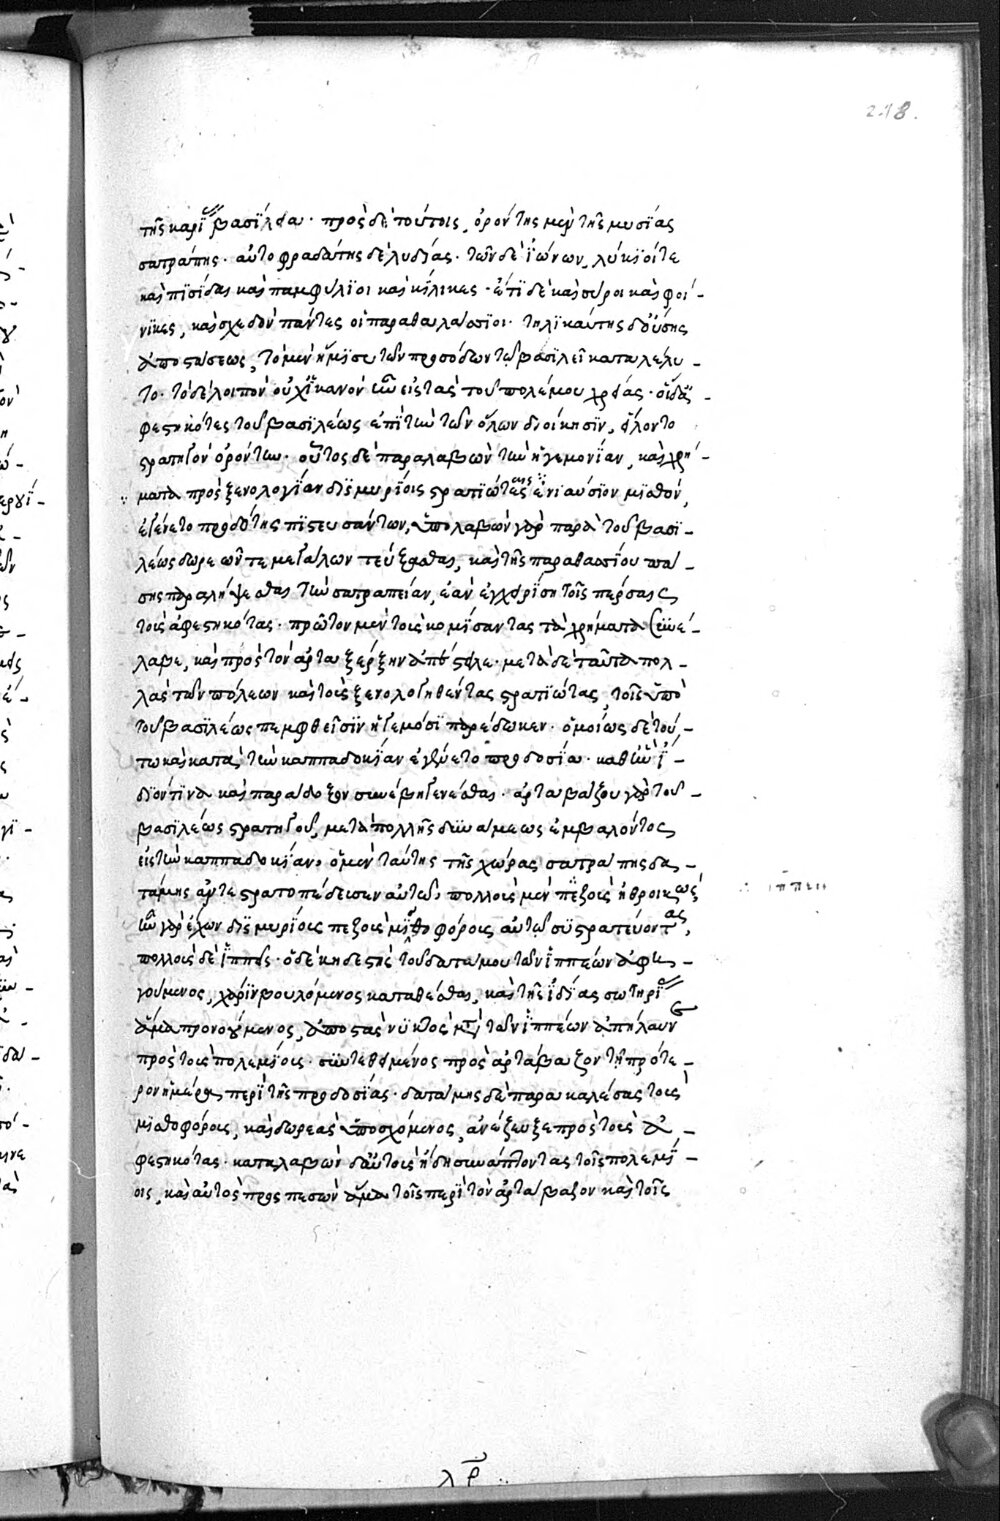 218.
τῆς καρί βασιλέα· πρὸς δὲ τούτοις, ὀρόντης μὲν τῆς μυσίας
σατράπης· αὐτοφραδάτης δὲ λυδίας· τῶν δὲ ἰώνων, λύκιοί τε
καὶ πισίδαι καὶ παμφύλιοι καὶ κίλικες· ἔτι δὲ καὶ σύροι καὶ φοί-
νικες, καὶ σχεδὸν πάντες οἱ παραθαλάσσιοι· τηλικαύτης δ' οὔσης
ἀποστάσεως, τὸ μὲν ἥμισυ τῶν προσόδων τῶ βασιλεῖ καταλέλυ-
το· τὸ δὲ λοιπὸν οὐχ ἱκανὸν ἦν εἰς τὰς τοῦ πολέμου χρείας· οἱ δ' ἀ-
φεστηκότες τοῦ βασιλέως ἐπὶ τὴν τῶν ὅλων διοίκησιν, εἵλοντο
στρατηγὸν ὀρόντην· οὗτος δὲ παραλαβὼν τὴν ἡγεμονίαν, καὶ χρή-
ματα πρὸς ξενολογίαν δισμυρίοις στρατιώταις ἐνιαύσιον μισθόν,
ἐγένετο προδότης πιστευσάντων, ὑπολαβὼν γὰρ παρὰ τοῦ βασι-
λέως δωρεῶν τε μεγάλων τεύξεσθαι, καὶ τῆς παραθαλασσίου πά-
σης παραλήψεσθαι τὴν σατραπείαν, ἐὰν ἐγχειρίση τοῖς πέρσαις
τοὺς ἀφεστηκότας· πρῶτον μὲν τοὺς κομίσαντας τὰ χρήματα συνέ-
λαβε, καὶ πρὸς τὸν ἀρταξέρξην ἀπέστειλε· μετὰ δὲ ταῦτα πολ-
λὰς τῶν πόλεων καὶ τοὺς ξενολογηθέντας στρατιώτας, τοῖς ὑπὸ
τοῦ βασιλέως πεμφθεῖσιν ἡγεμόσι παρέδωκεν· ὁμοίως δὲ τού-
τω καὶ κατὰ τὴν καππαδοκίαν ἐγένετο προδοσία· καθ' ἣν ἴ-
διόν τινα καὶ παράδοξον συνέβη γενέσθαι· ἀρταβάζου γὰρ τοῦ
βασιλέως στρατηγοῦ, μετὰ πολλῆς δυνάμεως ἐμβαλόντος
εἰς τὴν καππαδοκίαν, ὁ μὲν ταύτης τῆς χώρας σατράπης δα-
τάμης ἀντεστρατοπέδευσεν αὐτῶ, πολλοὺς μὲν πεζοὺς ἠθροικὼς
ἦν γὰρ ἔχων δισμυρίους πεζοὺς μισθοφόρους αὐτῶ συστρατεύοντας,
πολλοὺς δὲ ἱππεῖς· ὁ δὲ κηδεστὴς τοῦ δατάμου τῶν ἱππέων ἀφη-
γούμενος, χάριν βουλόμενος καταθέσθαι, καὶ τῆς ἰδίας σωτηρίας
ἅμα προνοούμενος, ἀποστὰς νυκτὸς μετὰ τῶν ἱππέων ἀπήλαυνε
πρὸς τοὺς πολεμίους· συντεθειμένος πρὸς ἀρτάβαζον τῆ πρότε-
ρον ἡμέρα περὶ τῆς προδοσίας· δατάμης δὲ παρακαλέσας τοὺς
μισθοφόρους, καὶ δωρεὰς ὑποσχόμενος, ἀνέζευξε πρὸς τοὺς ἀ-
φεστηκότας· καταλαβὼν δ' αὐτοὺς ἤδη συνάπτοντας τοῖς πολεμί-
οις, καὶ αὐτὸς προσπεσὼν ἅμα τοῖς περὶ τὸν ἀρτάβαζον καὶ τοῖς